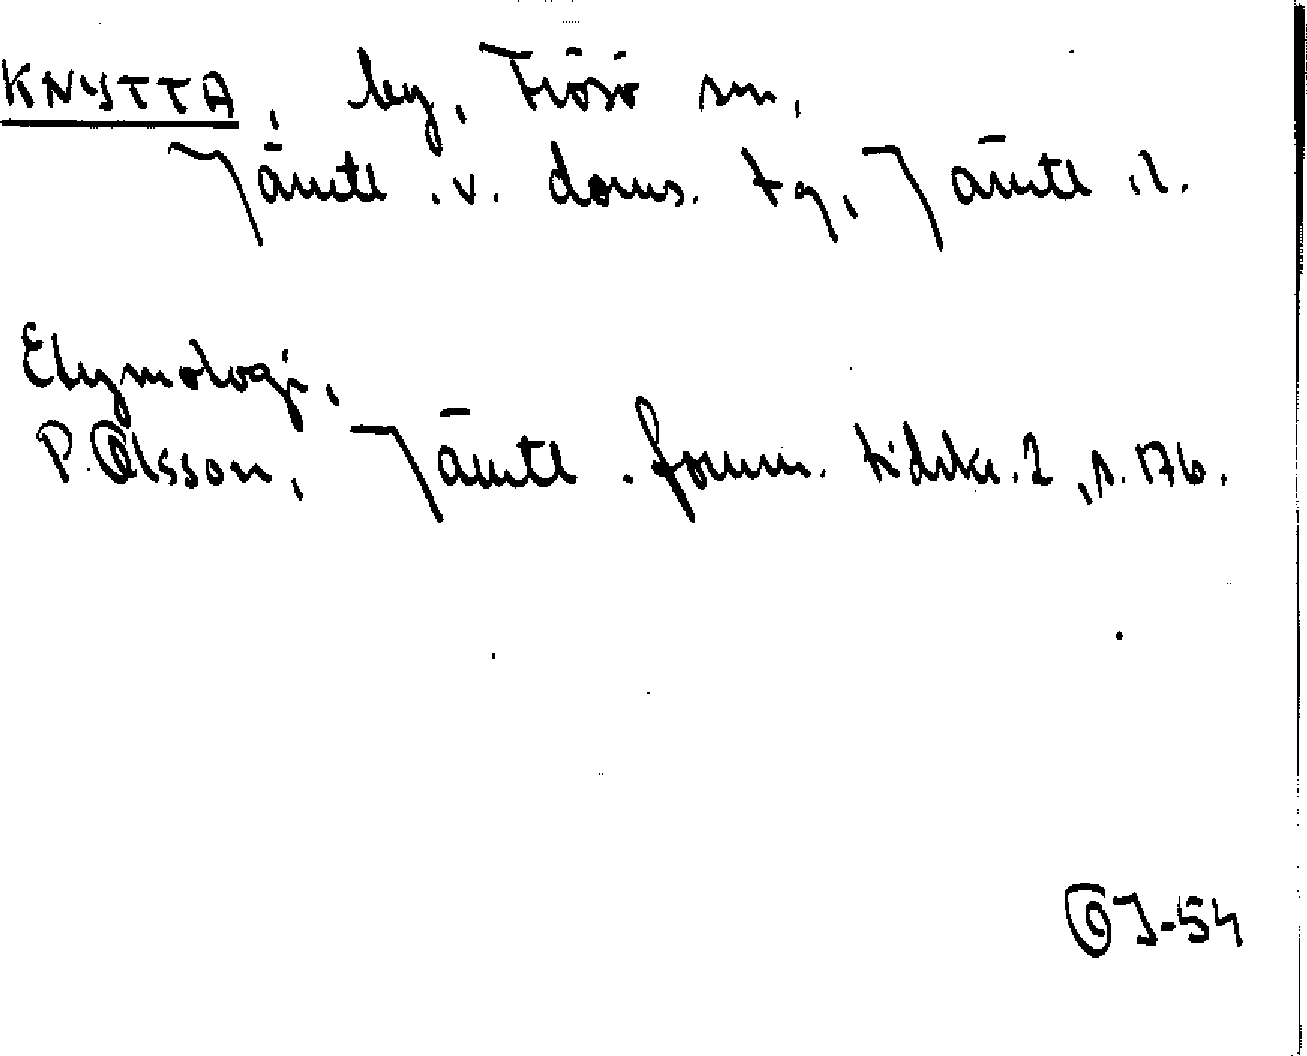 KNYTTA, by, Frösö sn,
Jämtl.v. doms. tg, Jämtl.l.
Etymologi,
P.Olsson, Jämtl.fornm. tidskr.2,s.176.
OJ-54